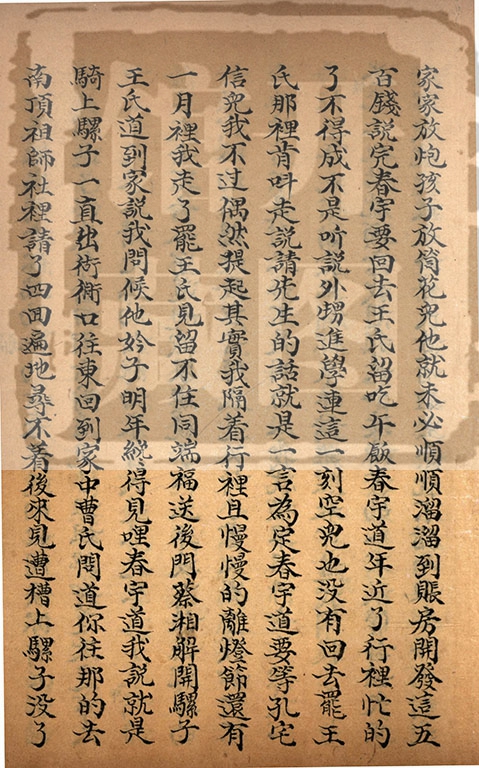 家家放炮孩子放筒花兒他就未必順順溜溜到賬房開發這五
百錢說完春宇要回去王氏留吃午飯春宇道年近了行裡忙的
了不得成不是听說外甥進學連這一刻空兒也没有回去罷王
氏那裡肯叫走說請先生的話就是一言為定春宇道要等孔宅
信兒我不过偶然提起其實我隔着行裡且慢慢的離燈節還有
一月裡我走了罷王氏見留不住同端福送後門蔡湘解開騾子
王氏道到家說我問候他妗子明年總得見哩春宇道我說就是
騎上騾子一直出衚衕口往東回到家中曹氏問道你往那的去
南頂祖師社裡請了四回遍地尋不着後來見遭槽上騾子没了